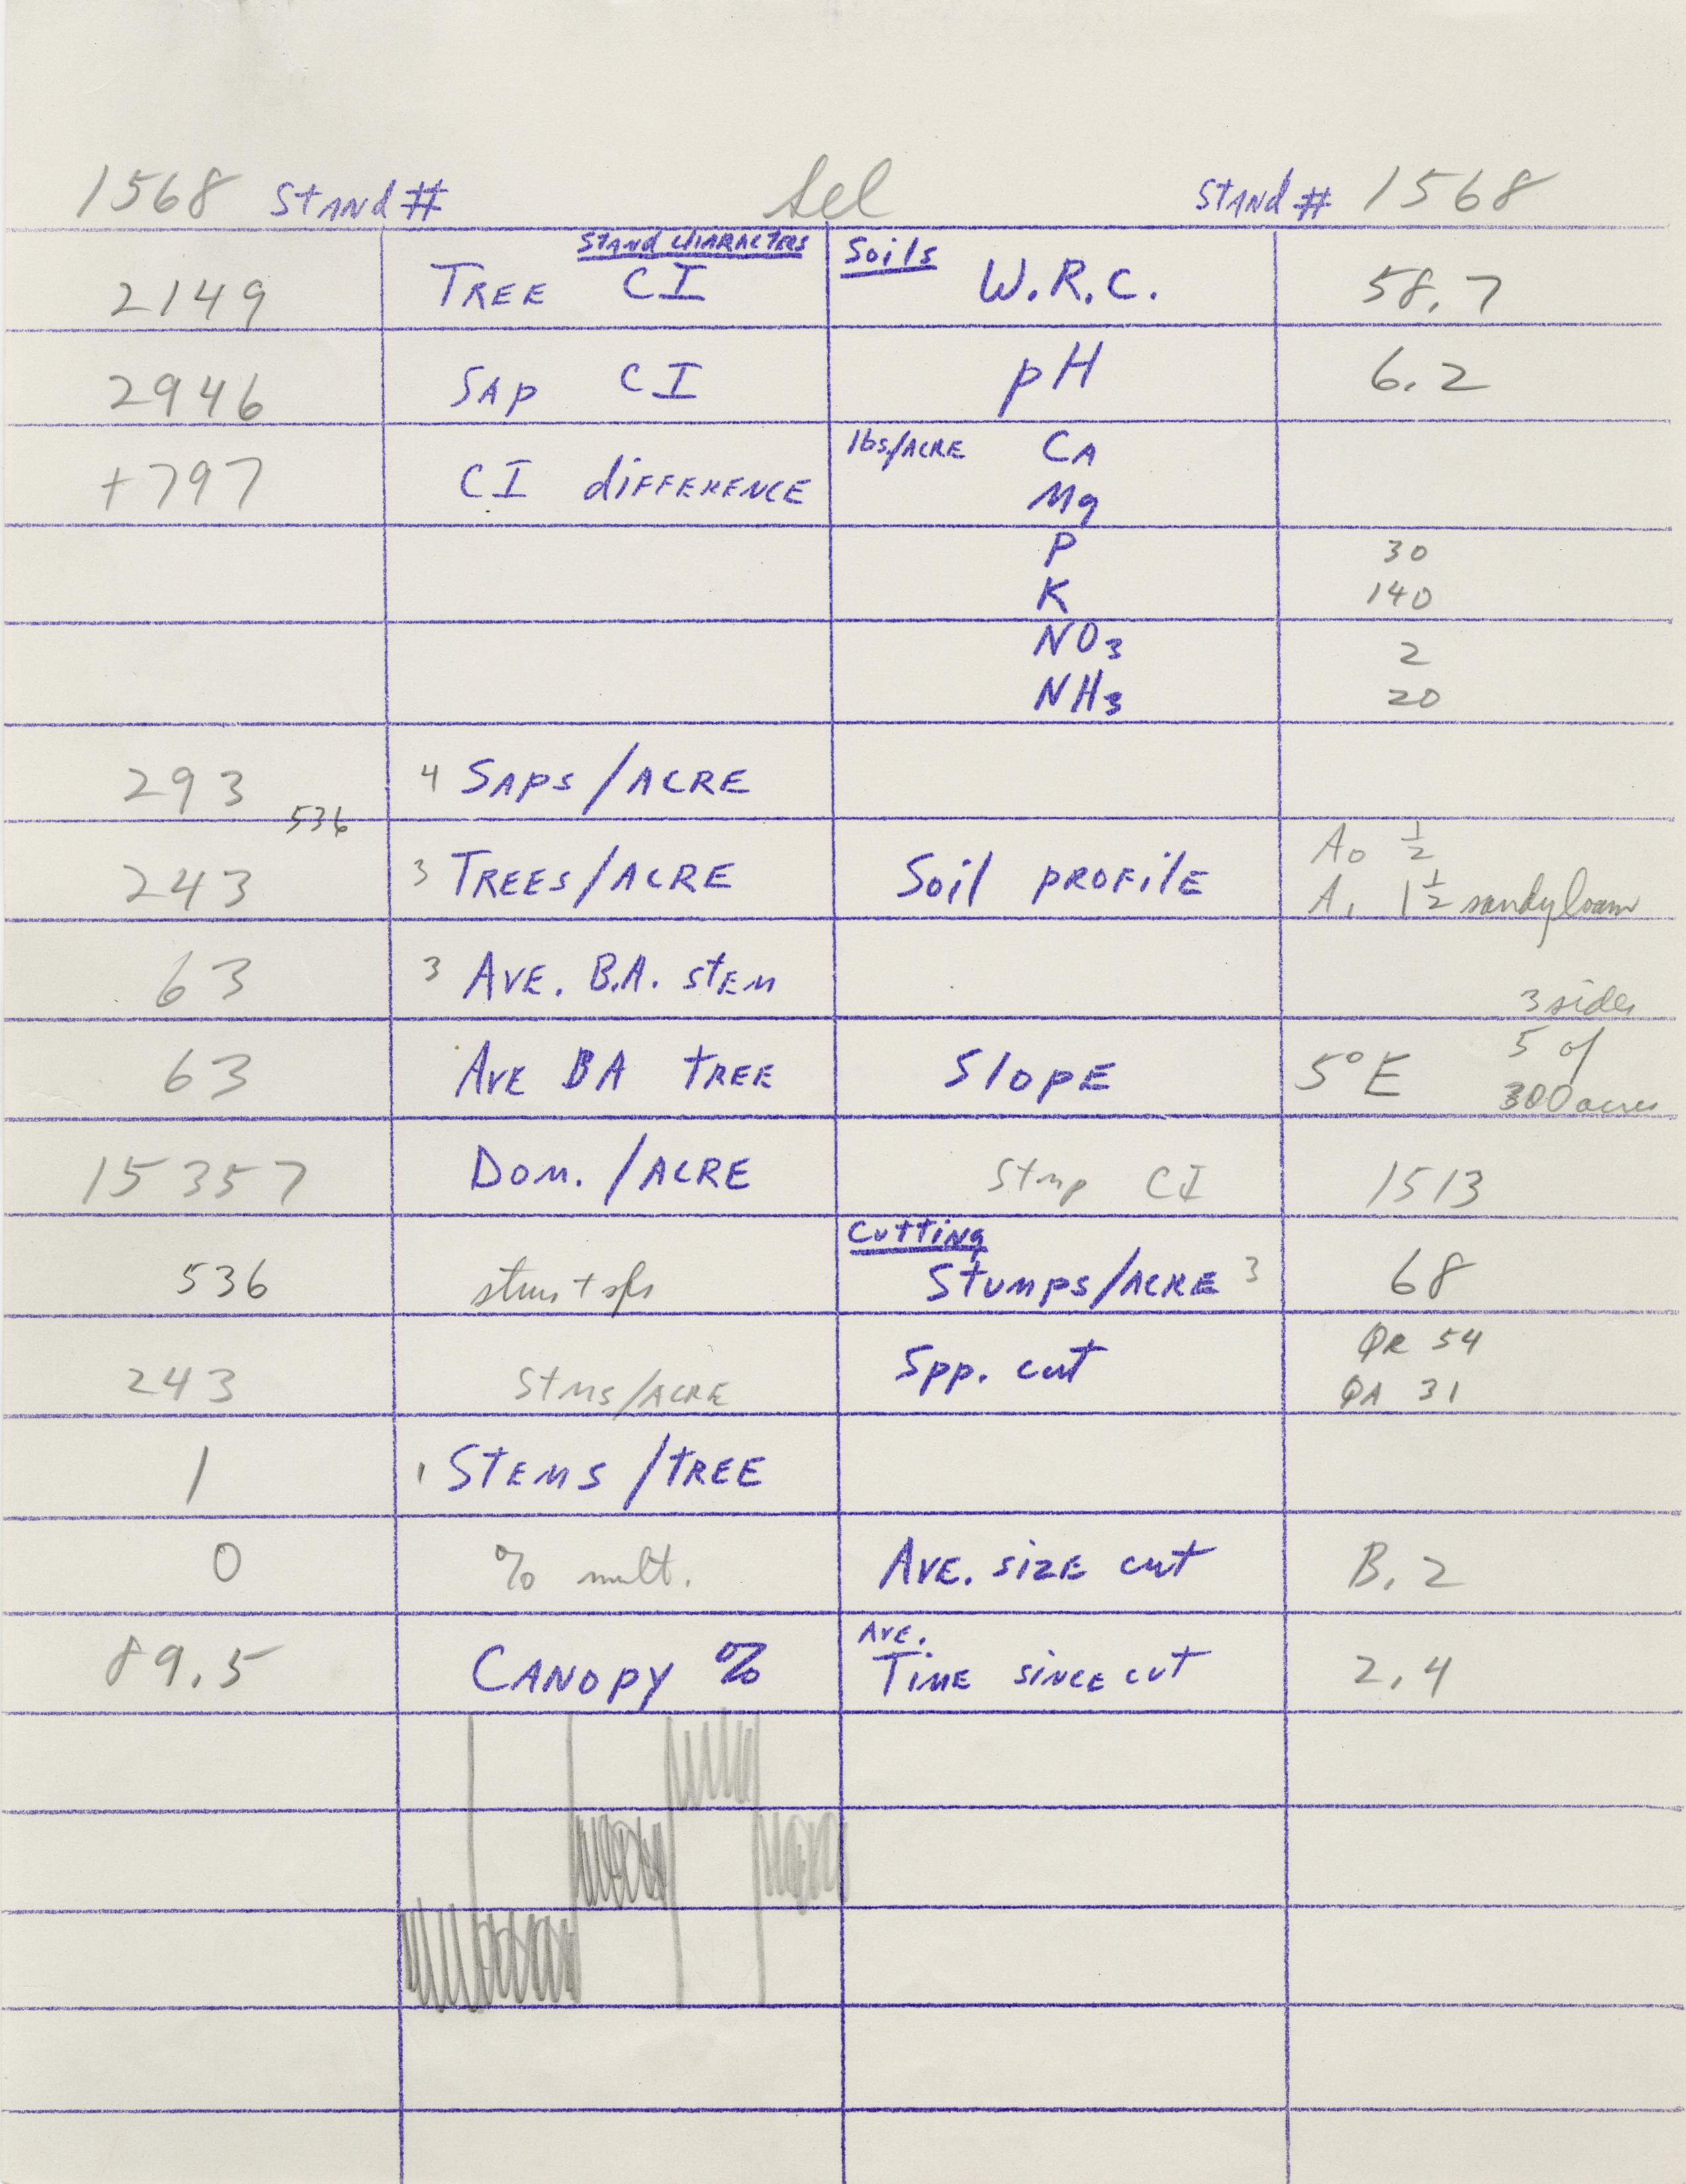 1568 Stand # Sel Stand # 1568
Stand Characters Soils
2149 Tree CI W.R.C. 58.7
2946 Sap CI pH 6.2
+797 CI difference lbs./Acre Ca
Mg
P 30
K 140
NO3 2
NH3 20
293 4 Saps/Acre
536
243 3 Trees/Acre Soil profile A0 1/2
A1 1 1/2 sandy loam
63 3 Ave. B.A. stem
3 sides
63 Ave BA tree Slope 5°E 5 of
300 acres
15357 Dom./Acre Stmp CI 1513
Cutting
536 stms + sps Stumps/Acre 3 68
243 Stms/Acre Spp. cut QR 54
QA 31
1 1 Stems/tree
0 % mult. Ave. size cut B.2
89.5 Canopy % Ave.
Time since cut 2.4